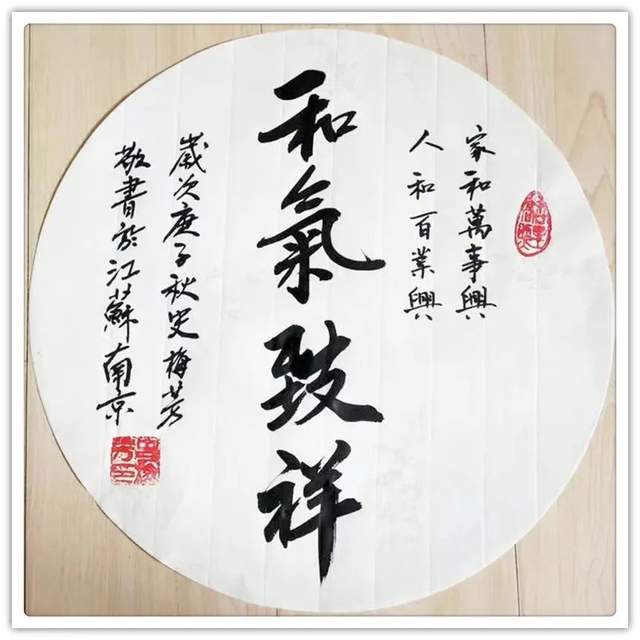 家和萬事興
人和百業興
和氣致祥
歲次庚子秋史梅芳
敬書於江蘇南京